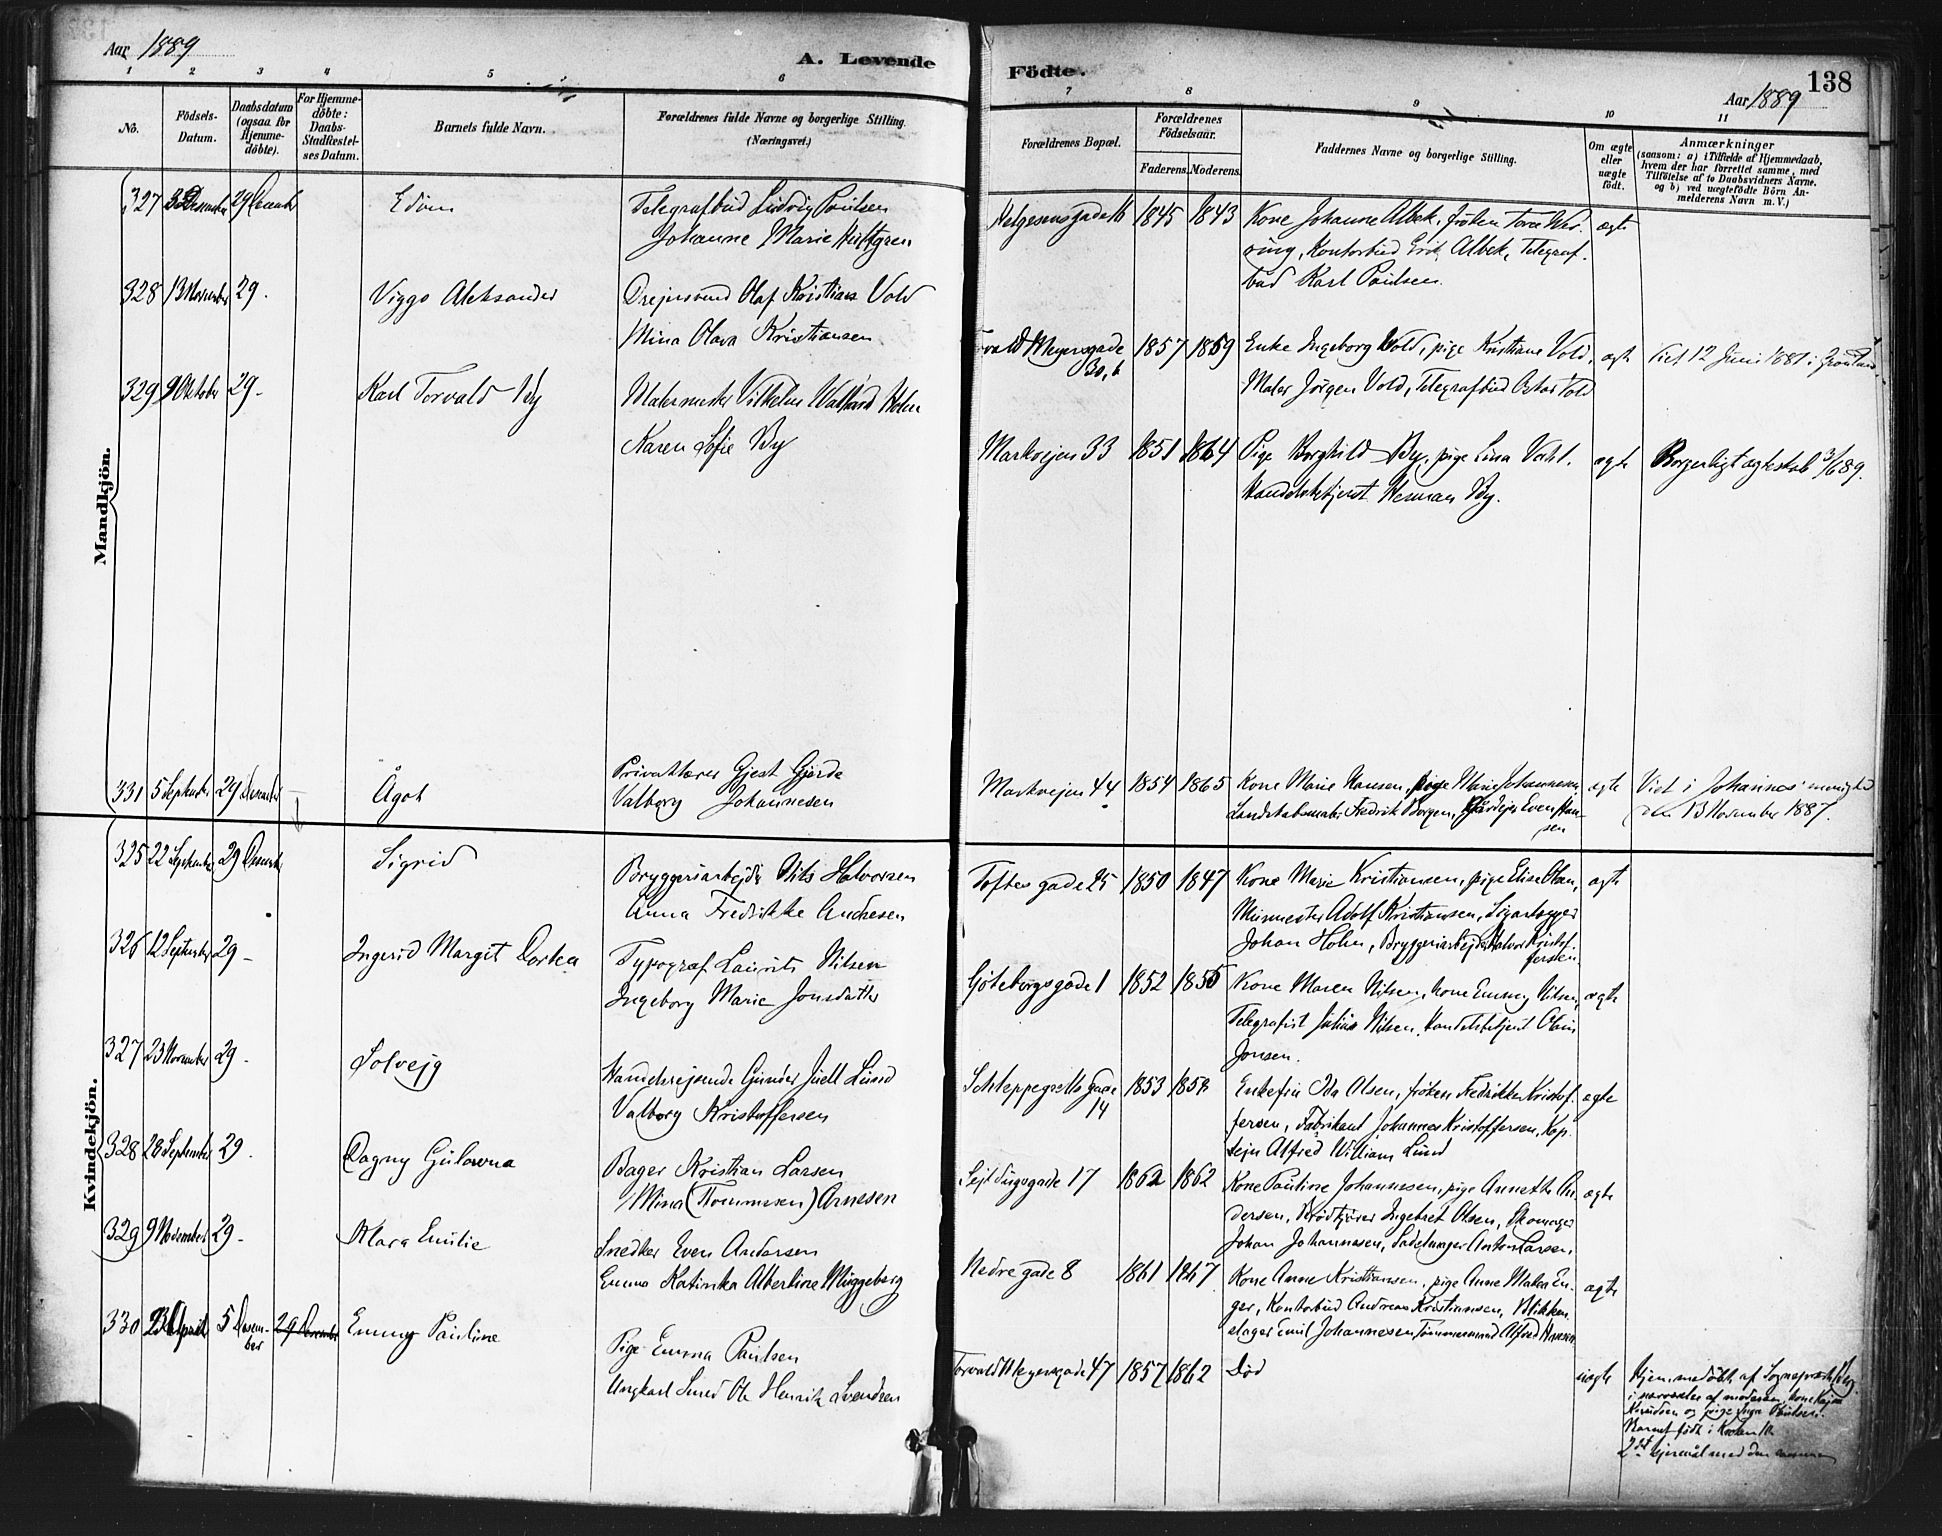 Aar 1889
A. Levende
Födte.
138
Aar 1889
1 2 3 4 5 6 7 8 9 10 11
No.
Födsels-
Datum.
Daabsdatum
(ogsaa for
Hjemme-
döbte).
For Hjemme-
döbte:
Daabs-
Stadfæstel-
ses Datum.
Barnets fulde Navn.
Forældrenes fulde Navne og borgerlige Stilling.
(Næringsvei.)
Forældrenes Bopæl.
Forældrenes
Födselsaar.
Faderens. Moderens.
Faddernes Navne og borgerlige Stilling.
Om ægte
eller
uægte
födt.
Anmærkninger
(saasom: a) i Tilfælde af Hjemmedaab,
hvem der har forrettet samme, med
Tilföielse af to Daabsvidners Navne.
og b) ved uægtefödte Börn An-
melderens Navn m. V.)
Mandkjön.
327 December 29 Edvin
Telegrafbud Ludvig Paulsen
Johanne Marie Hultgren
Helgesensgade 16 1845 1843
Kone Johanne Albek, fröken
Kontorbud Erik Albek, Telegraf-
bud Karl Paulsen.
ægte
328 13 November 29. Viggo Aleksander
Drejersvend Olaf Kristian Vold
Mina Olava Kristiansen
Meyersgade
30, b
1857 1859
Enke Ingeborg Vold, pige Kristiane Vold,
Maler Jörgen Vold, Telegrafbud Oskar Vold
ægte
Viet 12 Juni 1881 i
329 9 Oktober 29. Karl Torvald By
Malermester Vilhelm Holm
Karen Sofie By
Markvejen 33 1851 1864
Pige Borghild By, pige Lina
Handelsbetjent Herman By.
ægte
Borgerligt ægteskab 3/6 89.
331 5 September 29 December Ågot
Privatlærer Gjest Gjerde
Valborg Johannesen
Markvejen 44 1854 1865
Kone Marie Hansen, pige Marie Johannesen,
Landskabsmaler Fredrik Borgen, Even Han-
sen
ægte
Viet i Johannes' menighed
den 13 November 1887.
Kvindekjön.
325 22 September 29 December Sigrid
Bryggeriarbejder Nils Halvorsen
Anna Fredrikke Andresen
Toftes gade 25 1850 1847
Kone Marie Kristiansen, pige Elise Olsen,
Murmester Adolf Kristiansen,
Johan Holm, Bryggeriarbejder Halvor Kristof-
fersen.
ægte
326 12 September 29 Ingerid Margit Dortea
Typograf Laurits Nilsen
Ingeborg Marie Jonsdatter
Göteborgsgade 1 1852 1855
Kone Maren Nilsen, kone Emmy Nilsen,
Telegrafist Julius Nilsen, Handelsbetjent
Jonsen.
ægte
327 23 November 29. Solvejg
Handelsrejsende Gunder Juell Lund
Valborg Kristoffersen
Schleppegrells gade
14
1853
Enkefru Ida Olsen, fröken Fredrikke Kristof-
fersen, Fabrikant Johannes Kristoffersen, Kap-
tejn Alfred William Lund
ægte
328 28 September 29. Dagny Gulovna
Bager Kristian Larsen
Mina (Tommesen) Arnesen
Sejldugsgade 17 1862 1862
Kone Pauline Johannesen, pige Annette An-
dersen, Brödkjörer Ingebret Olsen, Skomager
Johan Johannesen, Sadelmager Anton Larsen.
ægte
329 9 November 29. Klara Emilie
Snedker Even Andersen
Emma Katinka Albertine Muggeberg
Nedre gade 8 1861 1867
Kone Anne Kristiansen, pige Anne Malea En-
ger, Kontorbud Andreas Kristiansen, Blikken-
slager Emil Johannesen, Tömmermand Alfred Hansen
ægte
330 23 April 5 Desem-
ber
29 December Emmy Pauline
Pige Emma Paulsen
Ungkarl Smed Ole Henrik Svendsen
Torvald Meyersgade 47 1857 1862
Död
uægte
Hjemmedöbt af Sogneprest
i nærværelse af moderen, kone Kaja
Knudsen og pige Inga Paulsen.
Barnet födt i
2det lejermål med den samme